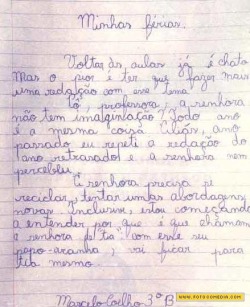 Minhas férias.
Voltar às aulas já é chato
Mas o pior é ter que fazer mais
uma redação com esse tema.
Pô, professora, a senhora
não tem imaginação? Todo ano
é a mesma coisa. Aliás, ano
passado eu repeti a redação do
ano retrasado e a senhora nem
percebeu.
A senhora precisa se
reciclar, tentar umas abordagens
novas. Inclusive, estou começando
a entender por que é que chamam
a senhora de tia: com esse seu
papo-aranha, vai ficar para
tia mesmo.
Marcelo Coelho 3º B